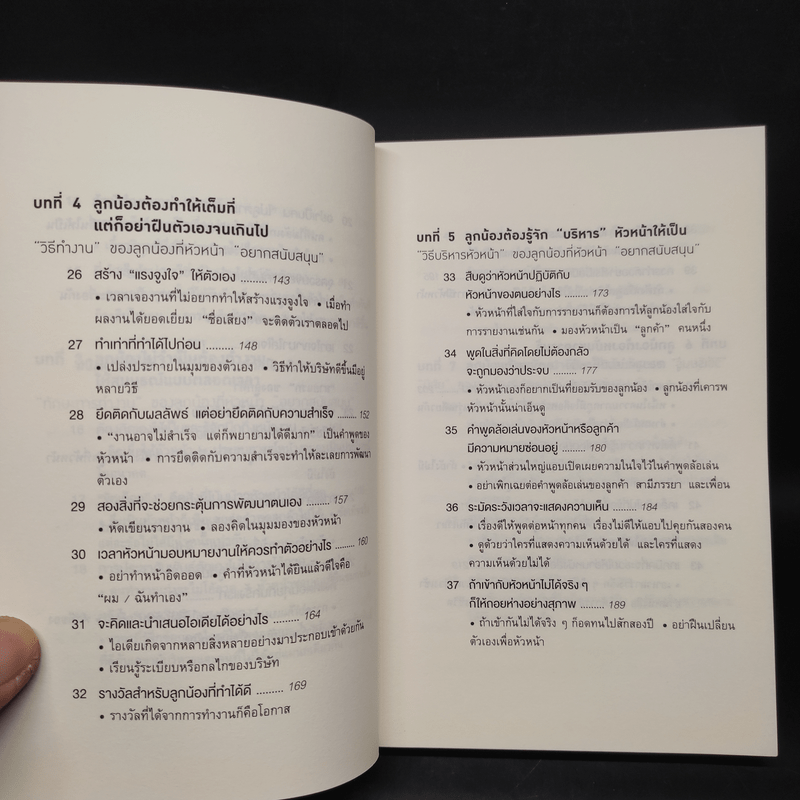 บทที่ 4 ลูกน้องต้องทำให้เต็มที่
แต่ก็อย่าฝืนตัวเองจนเกินไป
"วิธีทำงาน" ของลูกน้องที่หัวหน้า "อยากสนับสนุน"
26 สร้าง "แรงจูงใจ" ให้ตัวเอง ......... 143
• เวลาเจองานที่ไม่อยากทำให้สร้างแรงจูงใจ • เมื่อทำ
ผลงานได้ยอดเยี่ยม "ชื่อเสียง" จะติดตัวเราตลอดไป
27 ทำเท่าที่ทำได้ไปก่อน ......... 148
• เปล่งประกายในมุมของตัวเอง • วิธีทำให้บริษัทดีขึ้นมีอยู่
หลายวิธี
28 ยึดติดกับผลลัพธ์ แต่อย่ายึดติดกับความสำเร็จ ......... 152
• "งานอาจไม่สำเร็จ แต่ก็พยายามได้ดีมาก" เป็นคำพูดของ
หัวหน้า • การยึดติดกับความสำเร็จจะทำให้ละเลยการพัฒนา
ตัวเอง
29 สองสิ่งที่จะช่วยกระตุ้นการพัฒนาตนเอง ......... 157
• หัดเขียนรายงาน • ลองคิดในมุมมองของหัวหน้า
30 เวลาหัวหน้ามอบหมายงานให้ควรทำตัวอย่างไร ......... 160
• อย่าทำหน้าอิดออด • คำที่หัวหน้าได้ยินแล้วดีใจคือ
"ผม / ฉันทำเอง"
31 จะคิดและนำเสนอไอเดียได้อย่างไร ......... 164
• ไอเดียเกิดจากหลายสิ่งหลายอย่างมาประกอบเข้าด้วยกัน
• เรียนรู้ระเบียบหรือกลไกของบริษัท
32 รางวัลสำหรับลูกน้องที่ทำได้ดี ......... 169
• รางวัลที่ได้จากการทำงานก็คือโอกาส
บทที่ 5 ลูกน้องต้องรู้จัก "บริหาร" หัวหน้าให้เป็น
"วิธีบริหารหัวหน้า" ของลูกน้องที่หัวหน้า "อยากสนับสนุน"
33 สืบดูว่าหัวหน้าปฏิบัติกับ
หัวหน้าของตนอย่างไร ......... 173
• หัวหน้าที่ใส่ใจกับการรายงานก็ต้องการให้ลูกน้องใส่ใจกับ
การรายงานเช่นกัน • มองหัวหน้าเป็น "ลูกค้า" คนหนึ่ง
34 พูดในสิ่งที่คิดโดยไม่ต้องกลัว
จะถูกมองว่าประจบ ......... 177
• หัวหน้าเองก็อยากเป็นที่ยอมรับของลูกน้อง • ลูกน้องที่เคารพ
หัวหน้านั้นน่าเอ็นดู
35 คำพูดล้อเล่นของหัวหน้าหรือลูกค้า
มีความหมายซ่อนอยู่ ......... 180
• หัวหน้าส่วนใหญ่แอบเปิดเผยความในใจไว้ในคำพูดล้อเล่น
• อย่าเพิกเฉยต่อคำพูดล้อเล่นของลูกค้า สามีภรรยา และเพื่อน
36 ระมัดระวังเวลาจะแสดงความเห็น ......... 184
• เรื่องดีให้พูดต่อหน้าทุกคน เรื่องไม่ดีให้แอบไปคุยกันสองคน
• ดูด้วยว่าใครที่แสดงความเห็นด้วยได้ และใครที่แสดง
ความเห็นด้วยไม่ได้
37 ถ้าเข้ากับหัวหน้าไม่ได้จริง ๆ
ก็ให้ถอยห่างอย่างสุภาพ ......... 189
• ถ้าเข้ากันไม่ได้จริง ๆ ก็อดทนไปสักสองปี • อย่าฝืนเปลี่ยน
ตัวเองเพื่อหัวหน้า